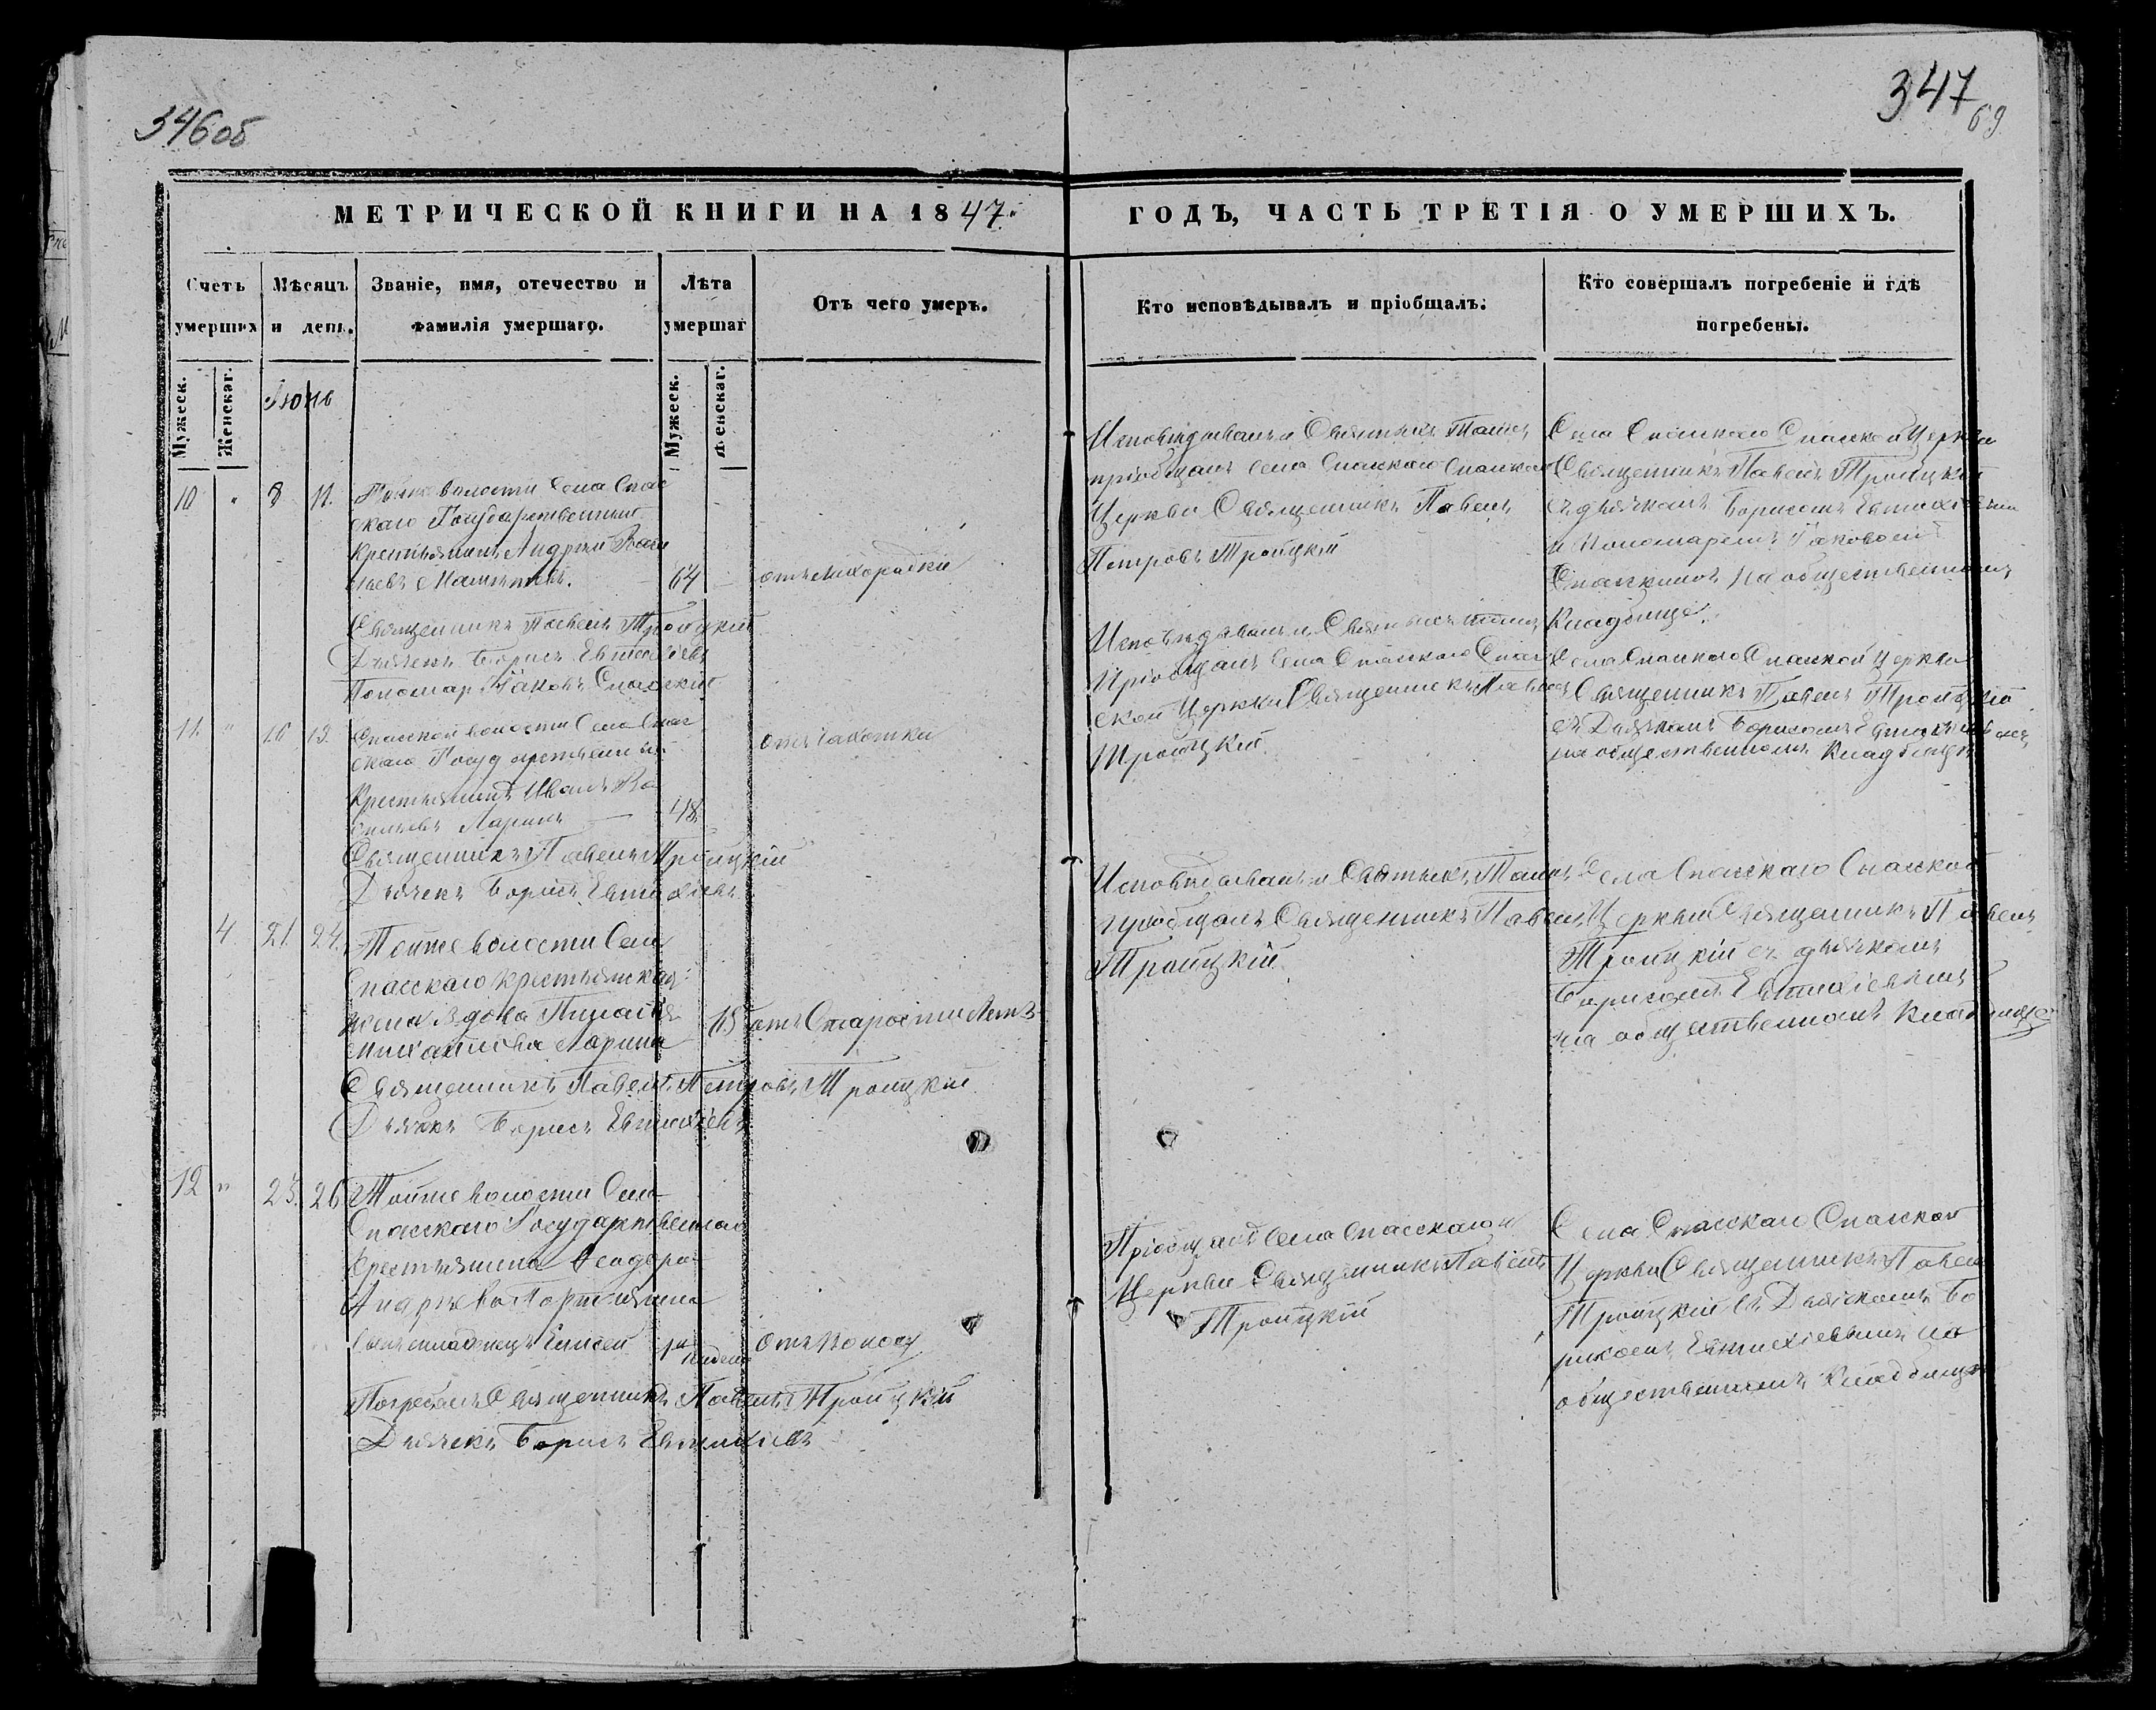 346об
347
69
МЕТРИЧЕСКОЙ КНИГИ НА 1847.
ГОДЪ, ЧАСТЬ ТРЕТІЯ О УМЕРШИХЪ.
Счетъ умерших
Мѣсяцъ и день.
Званіе, имя, отечество и фамилія умершаго.
Лѣта умершаг
Отъ чего умеръ.
Кто исповѣдывалъ и пріобщалъ.
Кто совершалъ погребеніе и гдѣ погребены.
Мужеск.
Женскаг.
Іюнь
Мужеск.
Женскаг.
10 " 8 11. волости Села Спас
скаго Государственный
Крестьянинъ Андрей Васи
льевъ
64 отъ лихорадки
Священникъ Павелъ Троицкій
Дьячекъ Борисъ Евтихіевъ
Пономарь Іаковъ Спасскій
Исповѣдывалъ и Святыхъ Таинъ
пріобщалъ Села Спаскаго Спаской
Церкви Священникъ Павелъ
Петровъ Троицкій
Села Спаскаго Спаской Церкви
Священникъ Павелъ Троицкій
съ дьячкомъ Борисомъ Евтихіевым
и Пономаремъ Іаковомъ
Спаскимъ на общественномъ
Кладбище.
11. " 10 13. Спасской волости Села Спас
скаго Государственный
Крестьянинъ Иванъ Ва
сильевъ Ларинъ 48.
отъ чахотки
Священникъ Павелъ Троицкій
Дьячекъ Борисъ Евтихіевъ
Исповѣдывалъ и Святыхъ таинъ
Пріобщалъ Села Спаскаго Спас
ской Церкви Священникъ Павелъ
Троицкій.
Села Спаскаго Спаской Церкви
Священникъ Павелъ Троицкій
съ Дьячкомъ Борисомъ Евтихіевымъ
на общественномъ Кладбище
4. 21. 24. Тойже волости Села
Спасскаго крестьянская
жена вдова
Михайлова Ларина
отъ Старости лѣтъ
Священникъ Павелъ Петровъ Троицкій
Дьячекъ Борисъ Евтихіевъ
Исповѣдывалъ и Святыхъ Таинъ
пріобщалъ Священникъ Павелъ
Троицкій.
Села Спасскаго Спаской
Церкви Священникъ Павелъ
Троицкій съ дьячкомъ
Борисомъ Евтихіевымъ
на общественномъ Кладбище
12 " 23. 26 Тойже волости Села
Спасскаго Государственнаго
Крестьянина Ѳеодора
Андреева
сынъ младенецъ Елисей
отъ поносу
Погребалъ Священникъ Павелъ Троицкій
Дьячекъ Борисъ Евтихіевъ
Пріобщалъ Села Спасскаго
Церкви Священникъ Павелъ
Троицкій
Села Спасскаго Спаской
Церкви Священникъ Павелъ
Троицкій съ Дьячкомъ Бо
рисомъ Евтихіевымъ на
общественномъ Кладбище